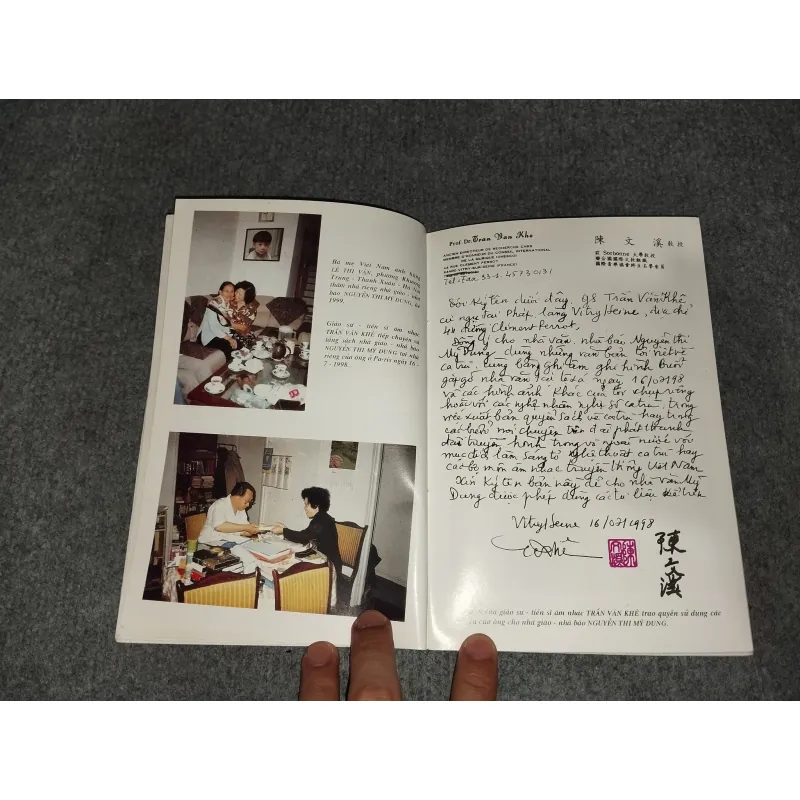 Bà mẹ Việt Nam anh hùng
LÊ THỊ VÂN, phường Khương
Trung - Thanh Xuân - Hà Nội
thăm nhà riêng nhà giáo - nhà
báo NGUYỄN THỊ MỸ DUNG,
1999.
Giáo sư - tiến sĩ âm nhạc
TRẦN VĂN KHÊ tiếp chuyện và
tặng sách nhà giáo - nhà báo
NGUYỄN THỊ MỸ DUNG tại nhà
riêng của ông ở Pa-ris ngày 16 -
7 - 1998.
Prof. Dr. Trần Văn Khê
陳 文 溪 教授
ANCIEN DIRECTEUR DE RECHERCHE CNRS
MEMBRE D'HONNEUR DU CONSEIL INTERNATIONAL
DE LA MUSIQUE (UNESCO)
44 RUE CLEMENT PERROT
94400 VITRY-SUR-SEINE (FRANCE)
前 Sorbonne 大學教授
Tôi ký tên dưới đây, GS Trần Văn Khê
cư ngụ tại Pháp, làng Vitry/Seine, địa chỉ
44 đường Clément Perrot,
Đồng ý cho nhà văn, nhà báo Nguyễn Thị
Mỹ Dung dùng những văn bản tôi viết về
ca trù, cùng băng ghi âm ghi hình buổi
gặp gỡ nhà văn tại tư gia ngày 16/07/98
và các hình ảnh khác của tôi chụp riêng
hoặc với các nghệ nhân nghệ sĩ ca trù, trong
việc xuất bản quyển sách về ca trù hay trong
các buổi nói chuyện trên đài phát thanh
đài truyền hình trong và ngoài nước với
mục đích làm sáng tỏ nghệ thuật ca trù hay
các bộ môn âm nhạc truyền thống Việt Nam
Xin ký tên bản này để cho nhà văn Mỹ
Dung được phép dùng các tư liệu kể trên
Vitry/Seine 16/07/1998
陳文溪
của giáo sư - tiến sĩ âm nhạc TRẦN VĂN KHÊ trao quyền sử dụng các
của ông cho nhà giáo - nhà báo NGUYỄN THỊ MỸ DUNG.